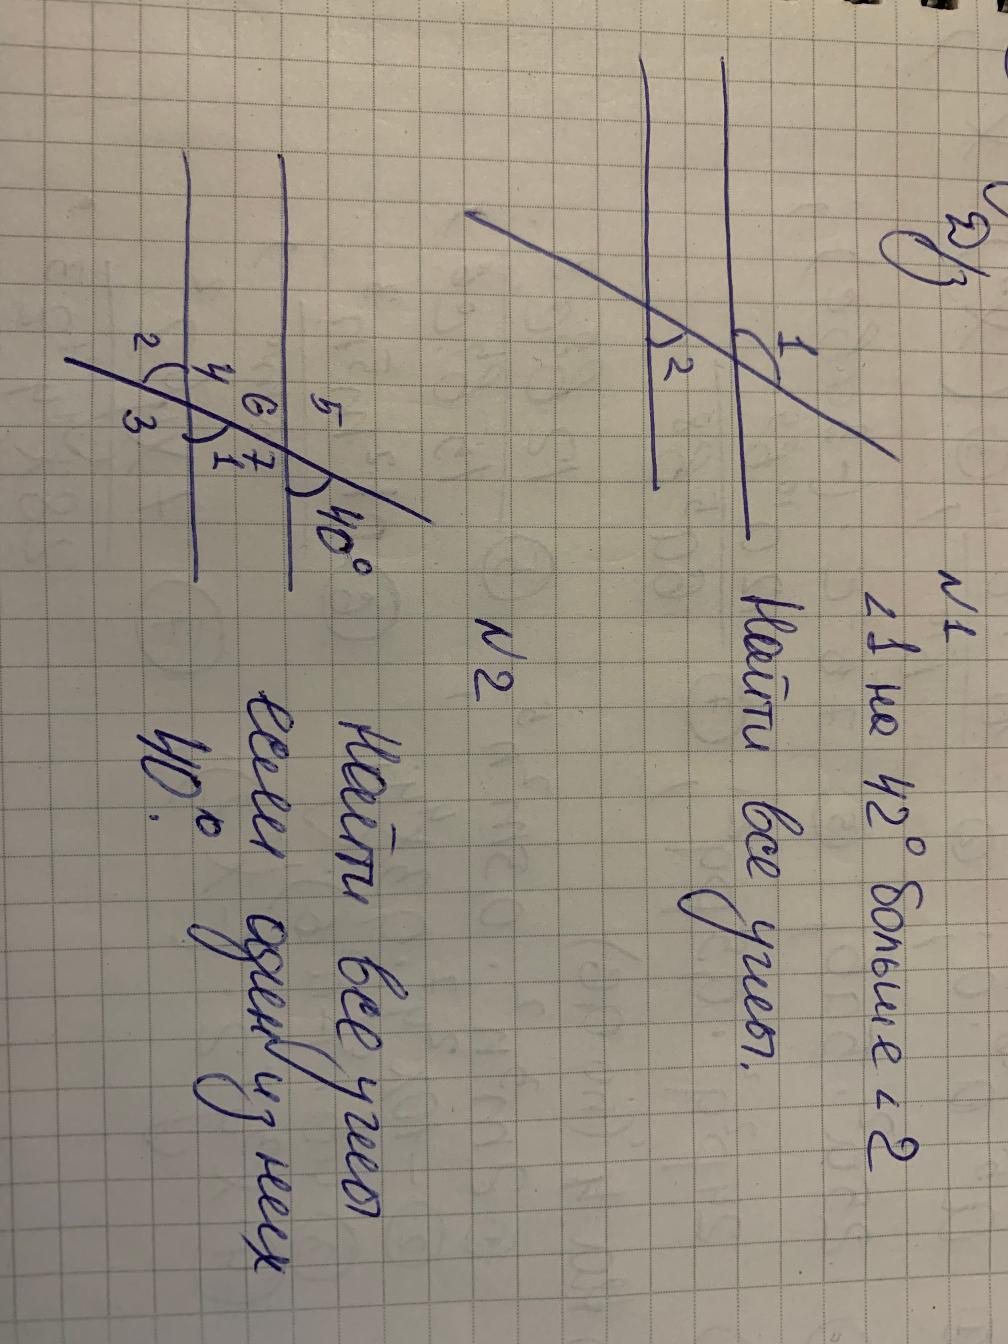 Д/з
N1
∠1 на 42° больше ∠2
Найти все углы.
1
2
N2
Найти все углы
если один из них
40°.
5
40°
6
7
4
1
2
3